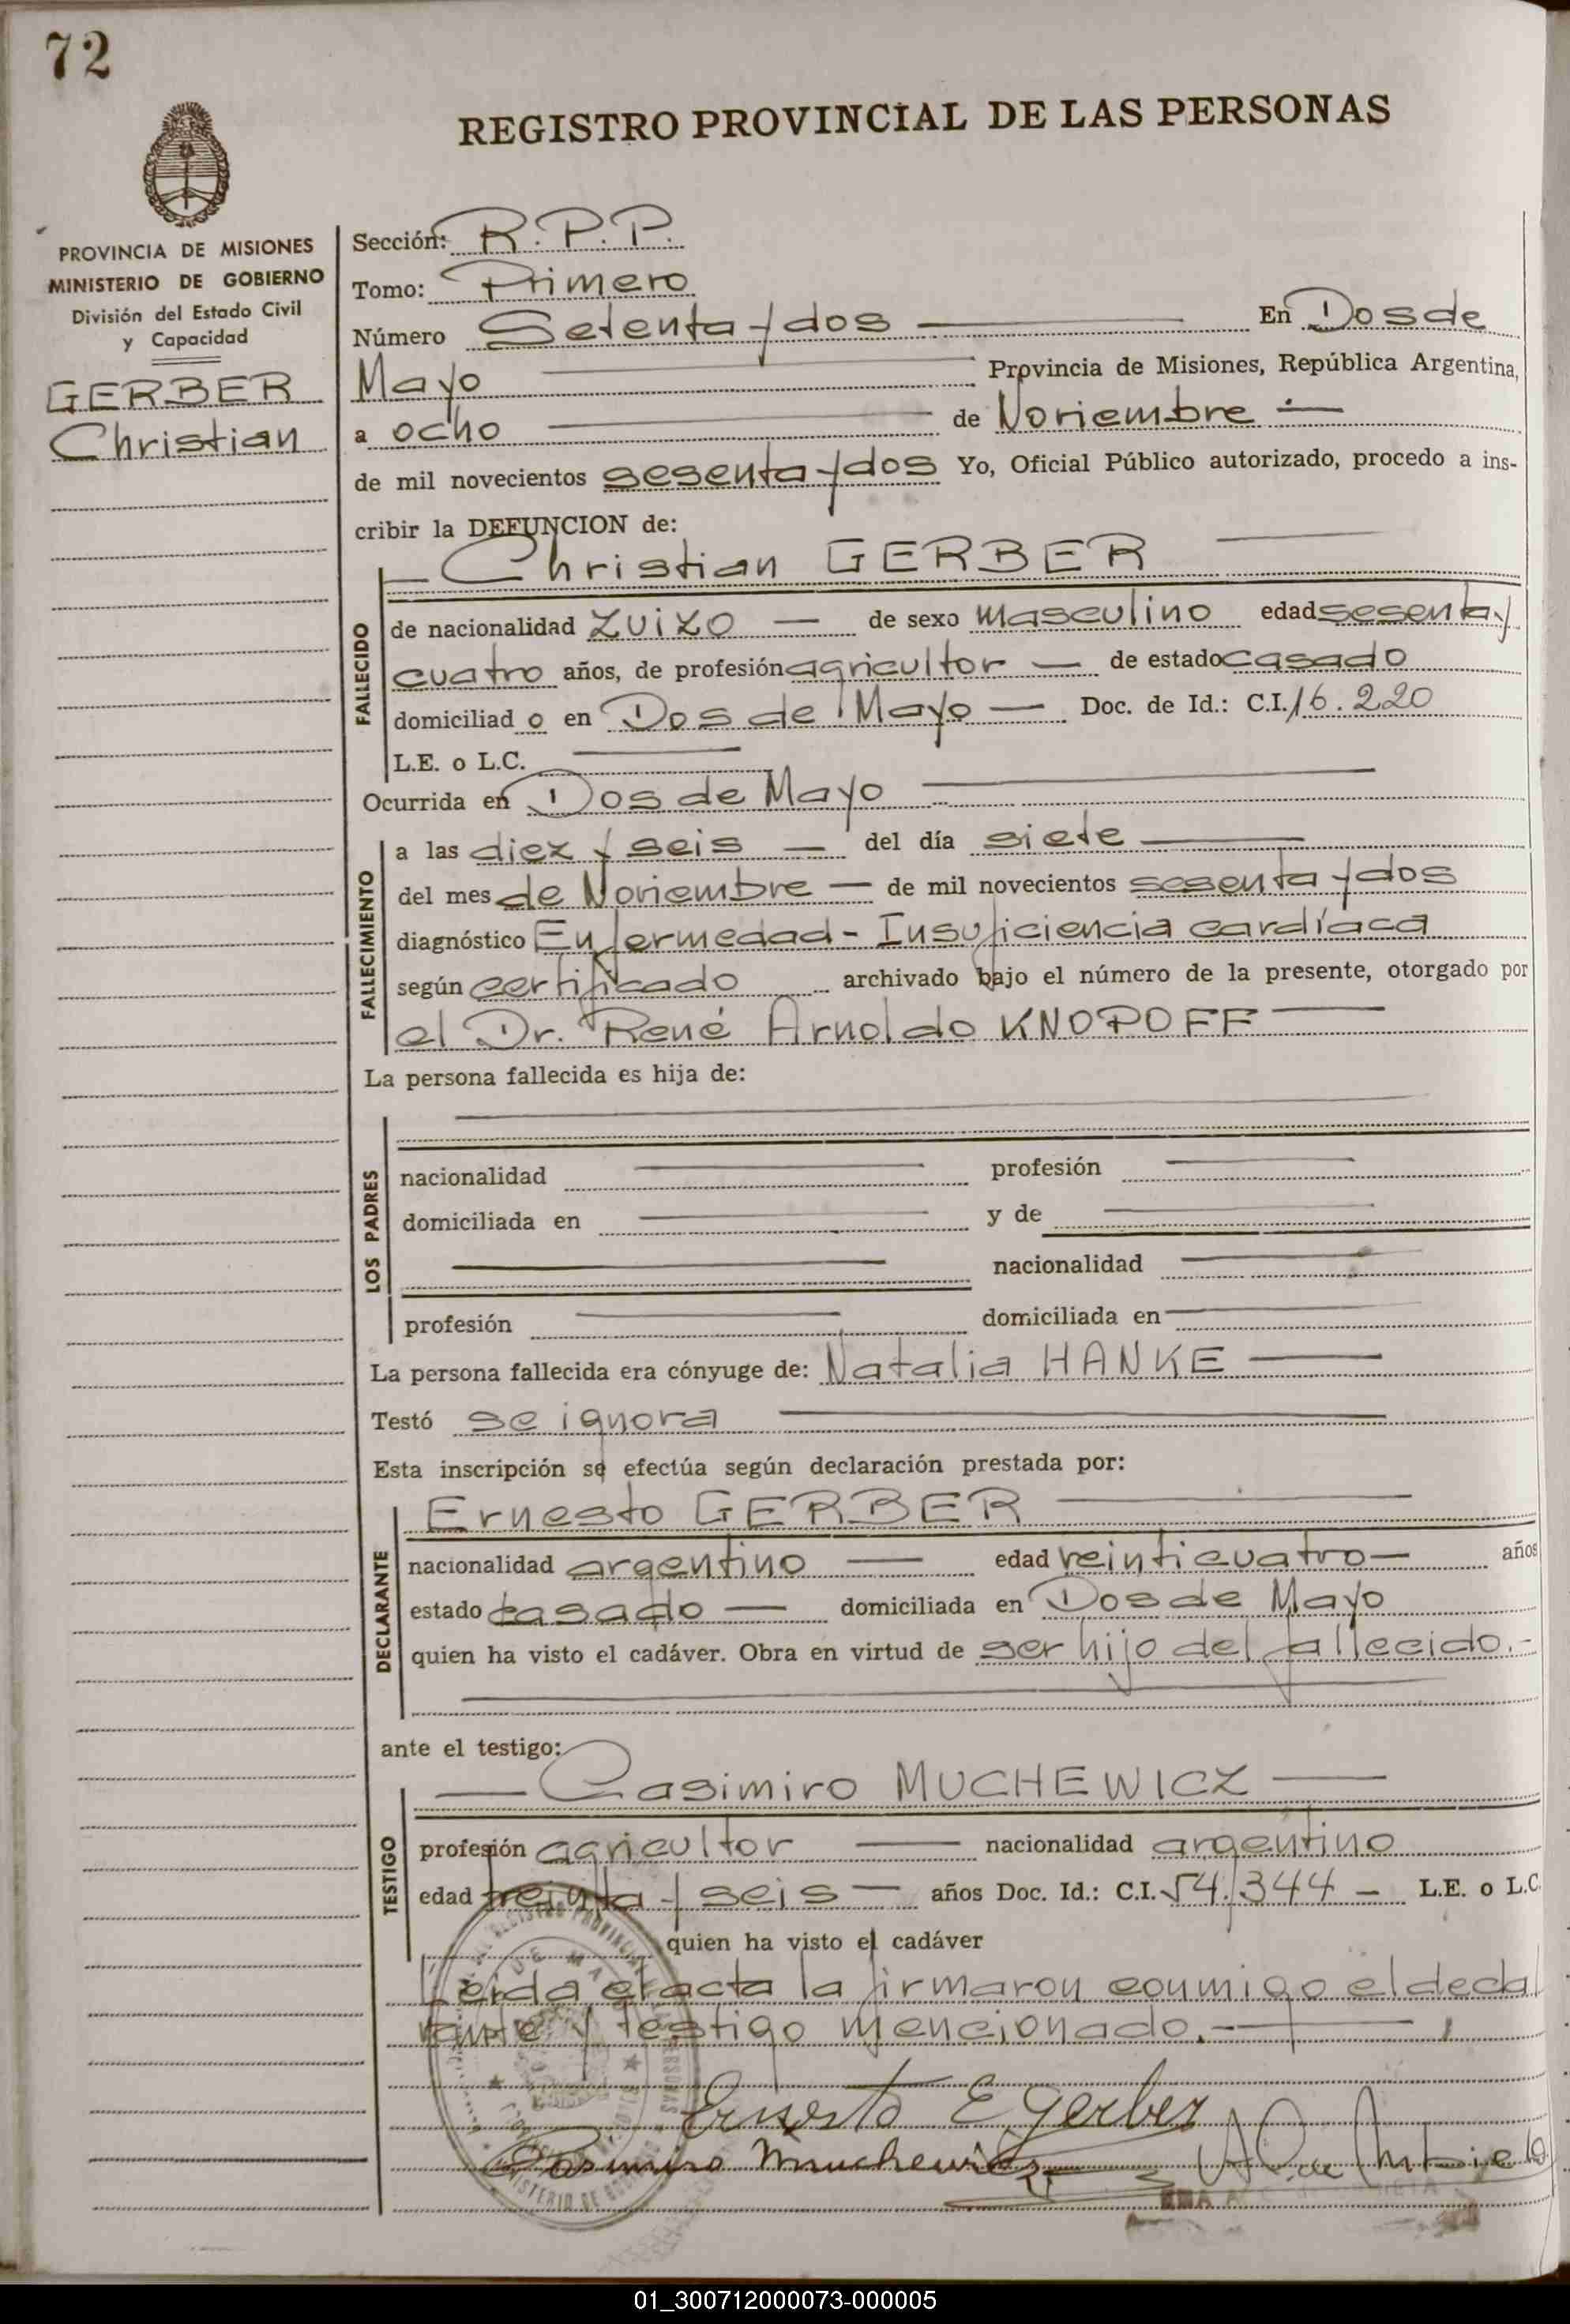 72
REGISTRO PROVINCIAL DE LAS PERSONAS
PROVINCIA DE MISIONES
MINISTERIO DE GOBIERNO
División del Estado Civil
y Capacidad
GERBER
Christian
Sección: R.P.P.
Tomo: Primero
Número Setenta y dos En Dos de
Mayo Provincia de Misiones, República Argentina,
a ocho de Noviembre
de mil novecientos sesenta y dos Yo, Oficial Público autorizado, procedo a ins-
cribir la DEFUNCION de:
Christian GERBER
FALLECIDO
de nacionalidad zuizo de sexo masculino edad sesenta y
cuatro años, de profesión agricultor de estado casado
domiciliad o en Dos de Mayo Doc. de Id.: C.I. 16.220
L.E. o L.C.
Ocurrida en Dos de Mayo
FALLECIMIENTO
a las diez y seis del día siete
del mes de Noviembre de mil novecientos sesenta y dos
diagnóstico Enfermedad - Insuficiencia cardíaca
según certificado archivado bajo el número de la presente, otorgado por
el Dr. René Arnoldo KNOPOFF
La persona fallecida es hija de:
LOS PADRES
nacionalidad profesión
domiciliada en y de
nacionalidad
profesión domiciliada en
La persona fallecida era cónyuge de: Natalia HANKE
Testó se ignora
Esta inscripción se efectúa según declaración prestada por:
Ernesto GERBER
DECLARANTE
nacionalidad argentino edad veinticuatro años
estado casado domiciliada en Dos de Mayo
quien ha visto el cadáver. Obra en virtud de ser hijo del fallecido.-
ante el testigo:
Casimiro MUCHEWICZ
TESTIGO
profesión agricultor nacionalidad argentino
edad treinta y seis años Doc. Id.: C.I. 54.344 - L.E. o L.C.
quien ha visto el cadáver
Leida el acta la firmaron conmigo el decla
rante y testigo mencionado.-
Ernesto E Gerber
Casimiro Muchewicz
01_300712000073-000005